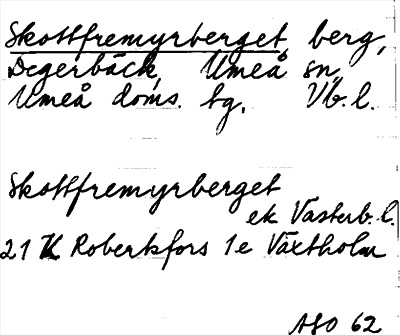 Skottfremyrberget, berg,
Degerbäck, Umeå sn,
Umeå doms. tg. Vb. l.
Skottfremyrberget
ek Västerb. l.
21 K Robertsfors 1e Växtholm
AGO 62